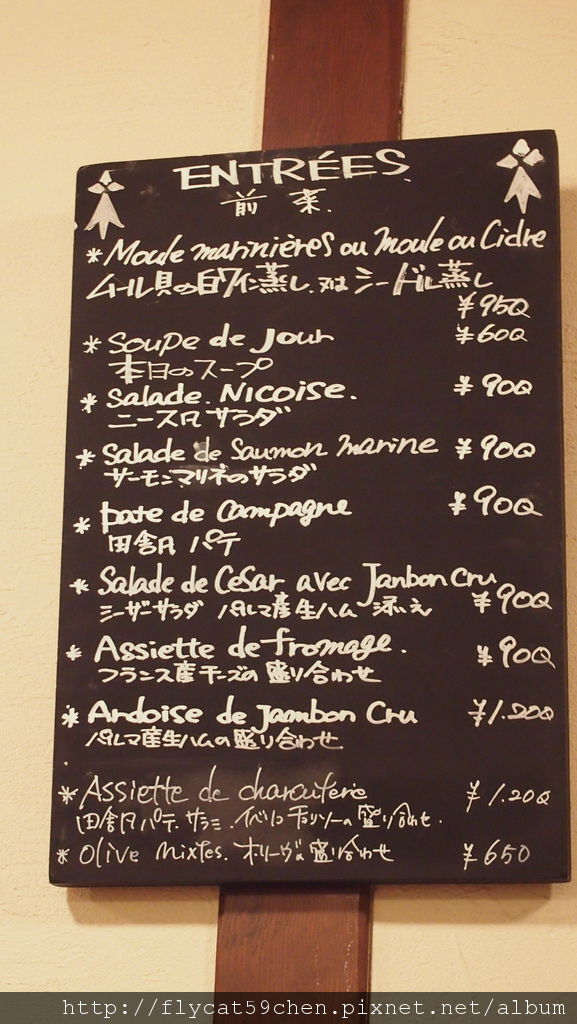 ENTRÉES
前菜
* Moule marinières ou moule au Cidre
ムール貝の白ワイン蒸し、又は シードル蒸し
¥950
* Soupe de Jour ¥600
本日のスープ
* Salade. NICOISE. ¥900
ニース風サラダ
* Salade de Saumon marine ¥900
サーモンマリネのサラダ
* pate de campagne ¥900
田舎風パテ
* Salade de CeSar avec Janbon cru
シーザーサラダ パルマ産生ハム 添え ¥900
* Assiette de fromage. ¥900
フランス産チーズの盛り合わせ
* Ardoise de Jambon Cru ¥1.200
パルマ産生ハムの盛り合わせ
* Assiette de charcuterie ¥1.200
田舎風パテ、サラミ、イベリコチョリソーの盛り合わせ.
* Olive mixtes. オリーヴの盛り合わせ ¥650
http://flycat59chen.pixnet.net/album